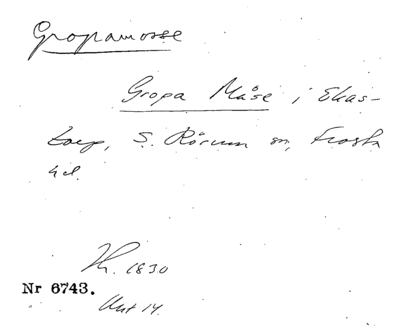 Gropamosse
Gropa Måse i Ekas-
torp, S. Rörum sn, Frosta
hd.
1830
Nr 6743.
Akt 14.